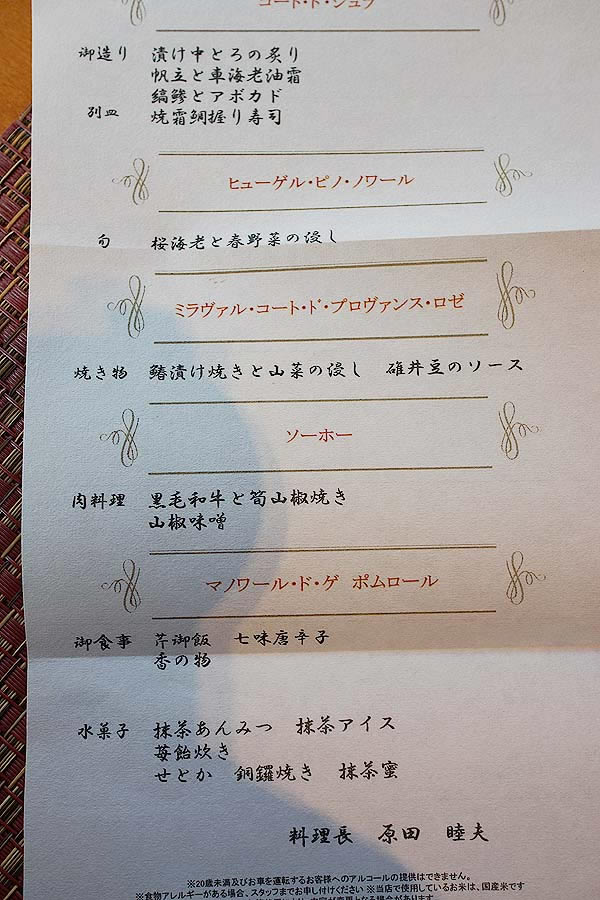 コート・ド・シュフ
御造り 漬け中とろの炙り
帆立と車海老油霜
縞鯵とアボカド
別皿 焼霜鯛握り寿司
ヒューゲル・ピノ・ノワール
旬 桜海老と春野菜の浸し
ミラヴァル・コート・ド・プロヴァンス・ロゼ
焼き物 鰆漬け焼きと山菜の浸し 碓井豆のソース
ソーホー
肉料理 黒毛和牛と筍山椒焼き
山椒味噌
マノワール・ド・ゲ ポムロール
御食事 芹御飯 七味唐辛子
香の物
水菓子 抹茶あんみつ 抹茶アイス
苺飴炊き
せとか 銅鑼焼き 抹茶蜜
料理長 原田 睦夫
※20歳未満及びお車を運転するお客様へのアルコールの提供はできません。
※食物アレルギーがある場合、スタッフまでお申し付けください ※当店で使用しているお米は、国産米です